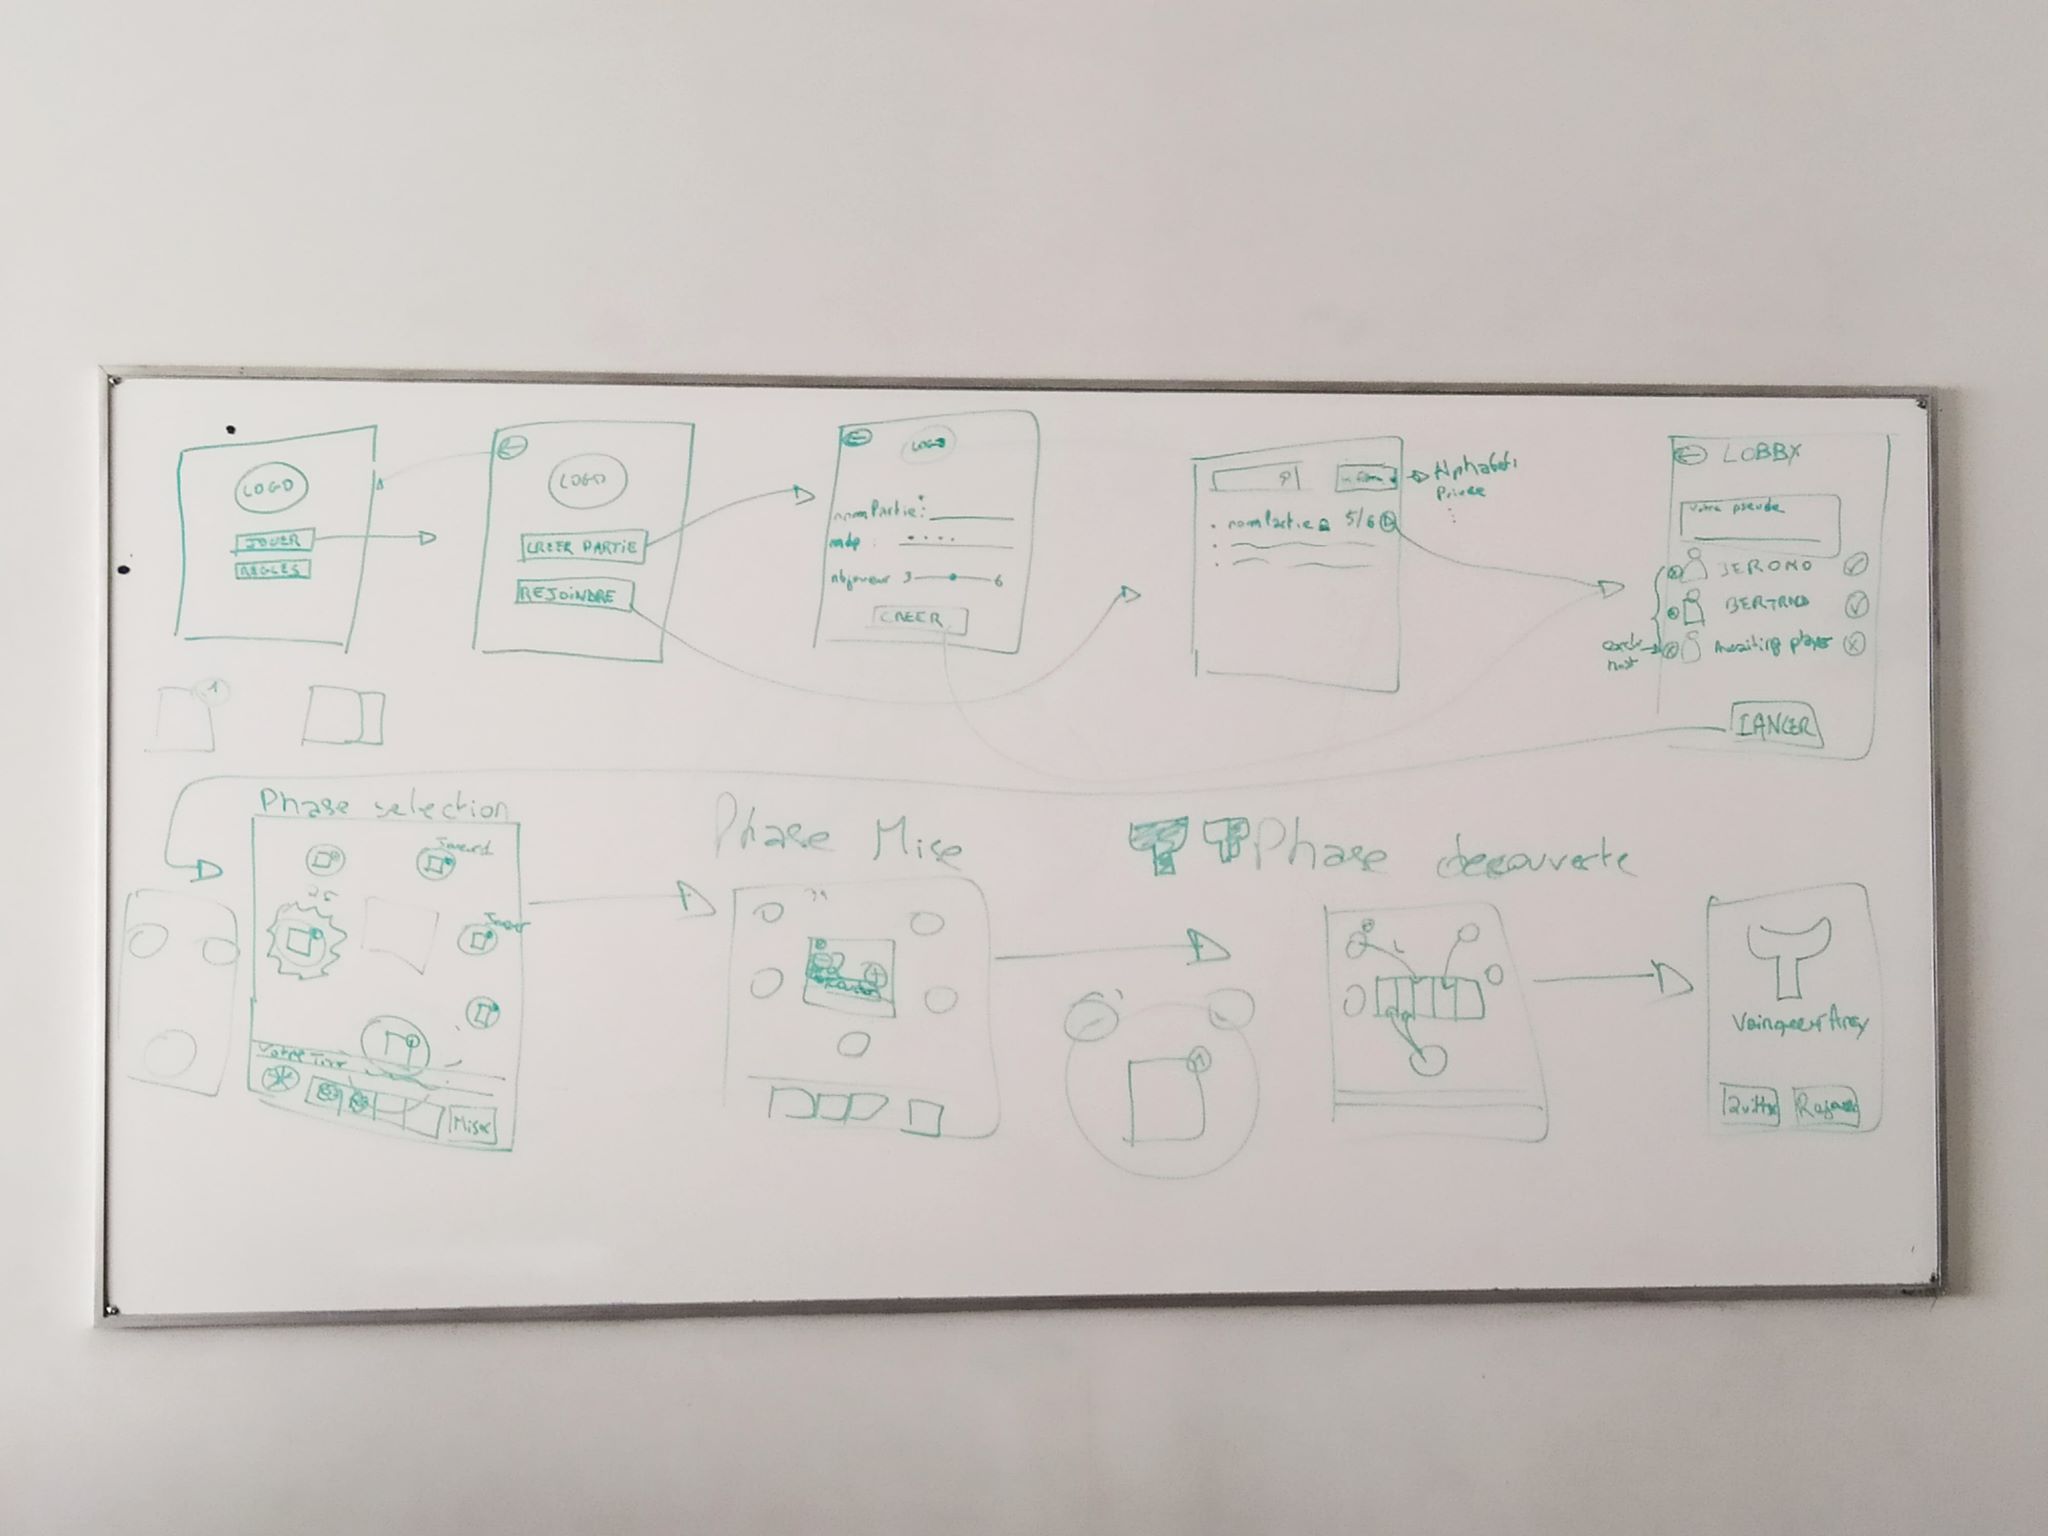 LOGO
JOUER
REGLES
LOGO
CREER PARTIE
REJOINDRE
LOGO
nomPartie:
mdp : ....
nbjoueur 3 6
CREER
nomPartie 5/6
Alphabeti
Privee
LOBBY
votre pseudo
JEROMO
BERTRAND
Awaiting player
host
LANCER
1
Phase selection
Joueur1
Joueur
Votre Tour
Mise
Phase Mise
Phase decouverte
1
Vainqueur Arey
Quitter